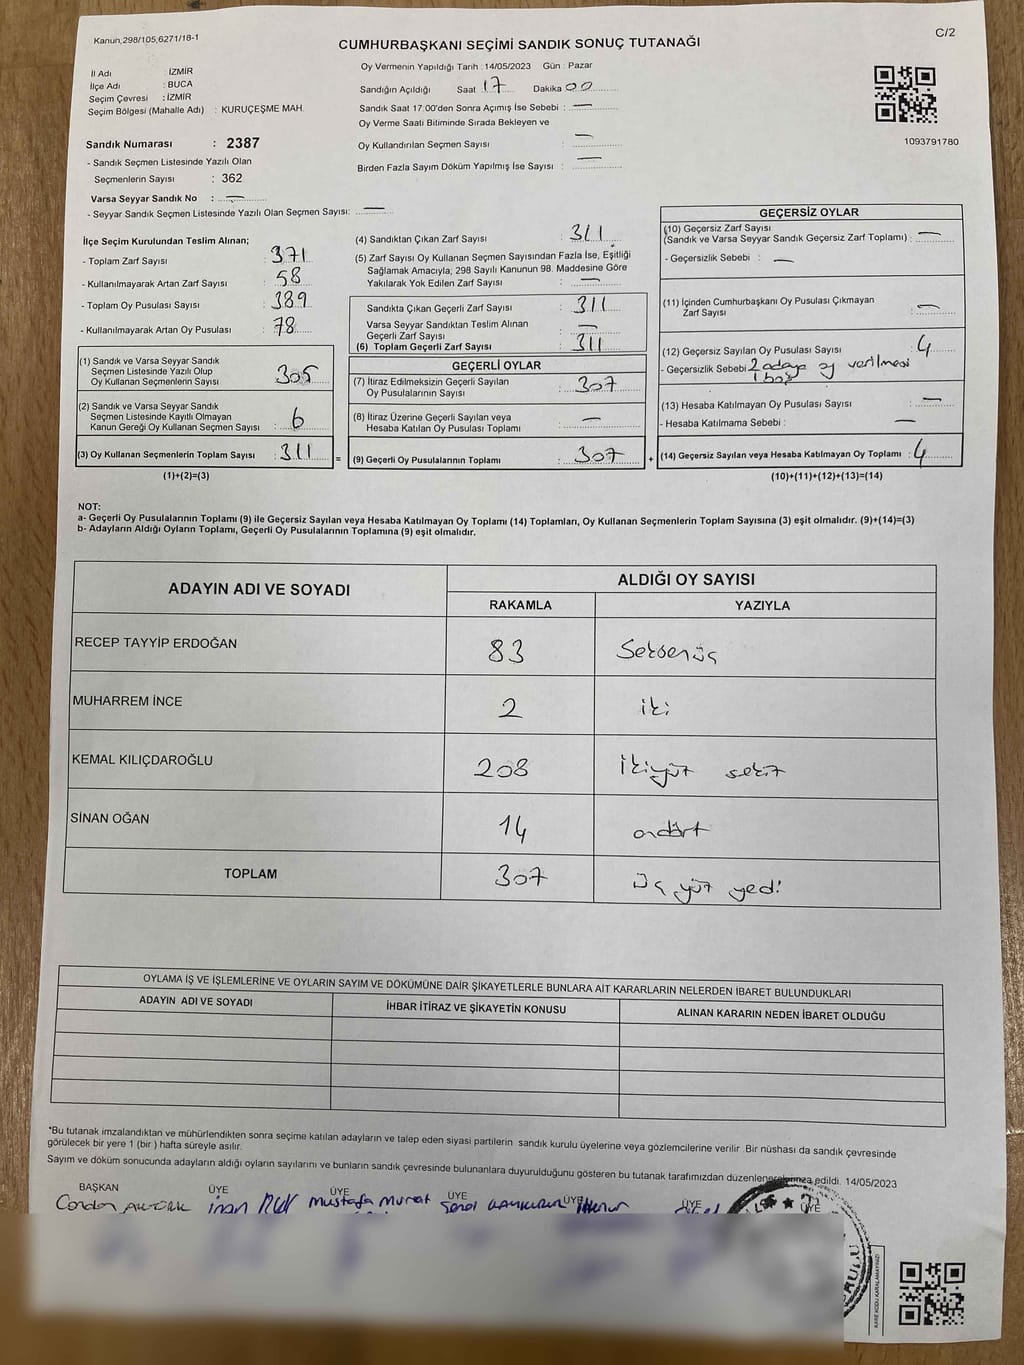 Kanun,298/105,6271/18-1
C/2
CUMHURBAŞKANI SEÇİMİ SANDIK SONUÇ TUTANAĞI
İl Adı : İZMİR
İlçe Adı : BUCA
Seçim Çevresi : İZMİR
Seçim Bölgesi (Mahalle Adı) : KURUÇEŞME MAH.
Oy Vermenin Yapıldığı Tarih :14/05/2023 Gün : Pazar
Sandığın Açıldığı Saat 17 Dakika 00
Sandık Saat 17:00'den Sonra Açımış İse Sebebi : —
Oy Verme Saati Bitiminde Sırada Bekleyen ve
Oy Kullandırılan Seçmen Sayısı : —
Birden Fazla Sayım Döküm Yapılmış İse Sayısı : —
1093791780
Sandık Numarası : 2387
- Sandık Seçmen Listesinde Yazılı Olan
Seçmenlerin Sayısı : 362
Varsa Seyyar Sandık No : —
- Seyyar Sandık Seçmen Listesinde Yazılı Olan Seçmen Sayısı: —
İlçe Seçim Kurulundan Teslim Alınan;
- Toplam Zarf Sayısı : 371
- Kullanılmayarak Artan Zarf Sayısı : 58
- Toplam Oy Pusulası Sayısı : 389
- Kullanılmayarak Artan Oy Pusulası : 78
(1) Sandık ve Varsa Seyyar Sandık
Seçmen Listesinde Yazılı Olup
Oy Kullanan Seçmenlerin Sayısı : 305
(2) Sandık ve Varsa Seyyar Sandık
Seçmen Listesinde Kayıtlı Olmayan
Kanun Gereği Oy Kullanan Seçmen Sayısı : 6
(3) Oy Kullanan Seçmenlerin Toplam Sayısı : 311
(1)+(2)=(3)
=
(4) Sandıktan Çıkan Zarf Sayısı : 311
(5) Zarf Sayısı Oy Kullanan Seçmen Sayısından Fazla İse, Eşitliği
Sağlamak Amacıyla; 298 Sayılı Kanunun 98. Maddesine Göre
Yakılarak Yok Edilen Zarf Sayısı : —
Sandıkta Çıkan Geçerli Zarf Sayısı : 311
Varsa Seyyar Sandıktan Teslim Alınan
Geçerli Zarf Sayısı : —
(6) Toplam Geçerli Zarf Sayısı : 311
GEÇERLİ OYLAR
(7) İtiraz Edilmeksizin Geçerli Sayılan
Oy Pusulalarının Sayısı : 307
(8) İtiraz Üzerine Geçerli Sayılan veya
Hesaba Katılan Oy Pusulası Toplamı : —
(9) Geçerli Oy Pusulalarının Toplamı : 307
+
GEÇERSİZ OYLAR
(10) Geçersiz Zarf Sayısı
(Sandık ve Varsa Seyyar Sandık Geçersiz Zarf Toplamı) : —
- Geçersizlik Sebebi : —
(11) İçinden Cumhurbaşkanı Oy Pusulası Çıkmayan
Zarf Sayısı : —
(12) Geçersiz Sayılan Oy Pusulası Sayısı : 4
- Geçersizlik Sebebi 2 adaya oy verilmesi
1 boş
(13) Hesaba Katılmayan Oy Pusulası Sayısı : —
- Hesaba Katılmama Sebebi : —
(14) Geçersiz Sayılan veya Hesaba Katılmayan Oy Toplamı : 4
(10)+(11)+(12)+(13)=(14)
NOT:
a- Geçerli Oy Pusulalarının Toplamı (9) ile Geçersiz Sayılan veya Hesaba Katılmayan Oy Toplamı (14) Toplamları, Oy Kullanan Seçmenlerin Toplam Sayısına (3) eşit olmalıdır. (9)+(14)=(3)
b- Adayların Aldığı Oyların Toplamı, Geçerli Oy Pusulalarının Toplamına (9) eşit olmalıdır.
ADAYIN ADI VE SOYADI ALDIĞI OY SAYISI
RAKAMLA YAZIYLA
RECEP TAYYİP ERDOĞAN 83 Seksenüç
MUHARREM İNCE 2 iki
KEMAL KILIÇDAROĞLU 208 İkiyüz sekiz
SİNAN OĞAN 14 ondört
TOPLAM 307 Üç yüz yedi
OYLAMA İŞ VE İŞLEMLERİNE VE OYLARIN SAYIM VE DÖKÜMÜNE DAİR ŞİKAYETLERLE BUNLARA AİT KARARLARIN NELERDEN İBARET BULUNDUKLARI
ADAYIN ADI VE SOYADI İHBAR İTİRAZ VE ŞİKAYETİN KONUSU ALINAN KARARIN NEDEN İBARET OLDUĞU
*Bu tutanak imzalandıktan ve mühürlendikten sonra seçime katılan adayların ve talep eden siyasi partilerin sandık kurulu üyelerine veya gözlemcilerine verilir. Bir nüshası da sandık çevresinde
görülecek bir yere 1 (bir ) hafta süreyle asılır.
Sayım ve döküm sonucunda adayların aldığı oyların sayılarını ve bunların sandık çevresinde bulunanlara duyurulduğunu gösteren bu tutanak tarafımızdan düzenlenerek imza edildi. 14/05/2023
BAŞKAN ÜYE ÜYE ÜYE ÜYE ÜYE ÜYE
Mustafa Murat
KARE KODU KARALAMAYINIZ!